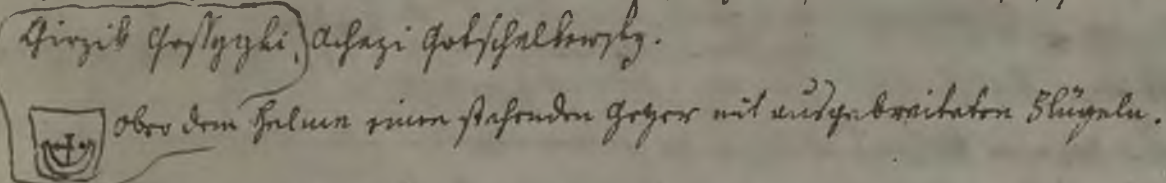 Achazi Gotschalkowsky.
ober dem Helm einen stehenden Geyer mit ausgebreiteten Flügeln.